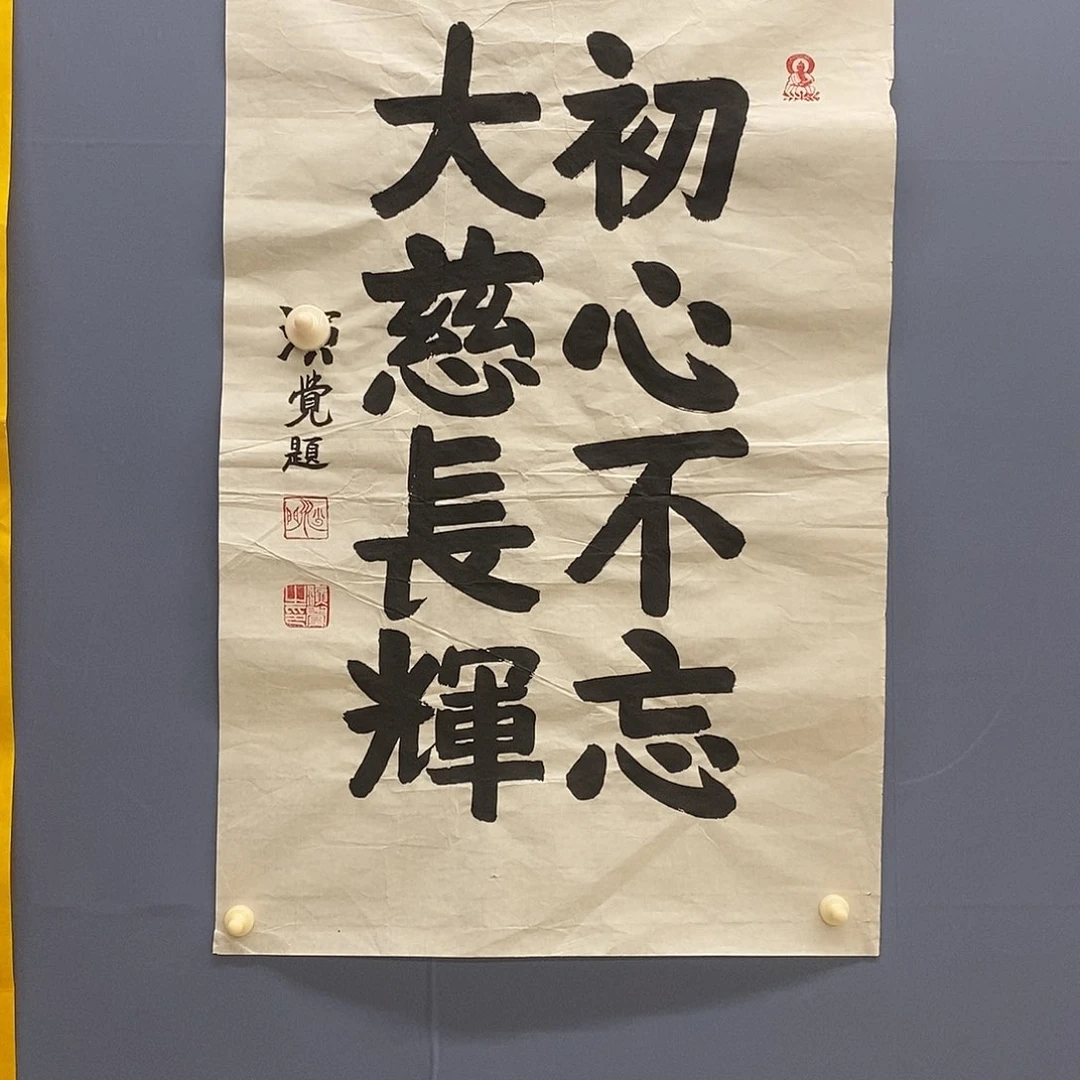 初心不忘
大慈長輝
覺題